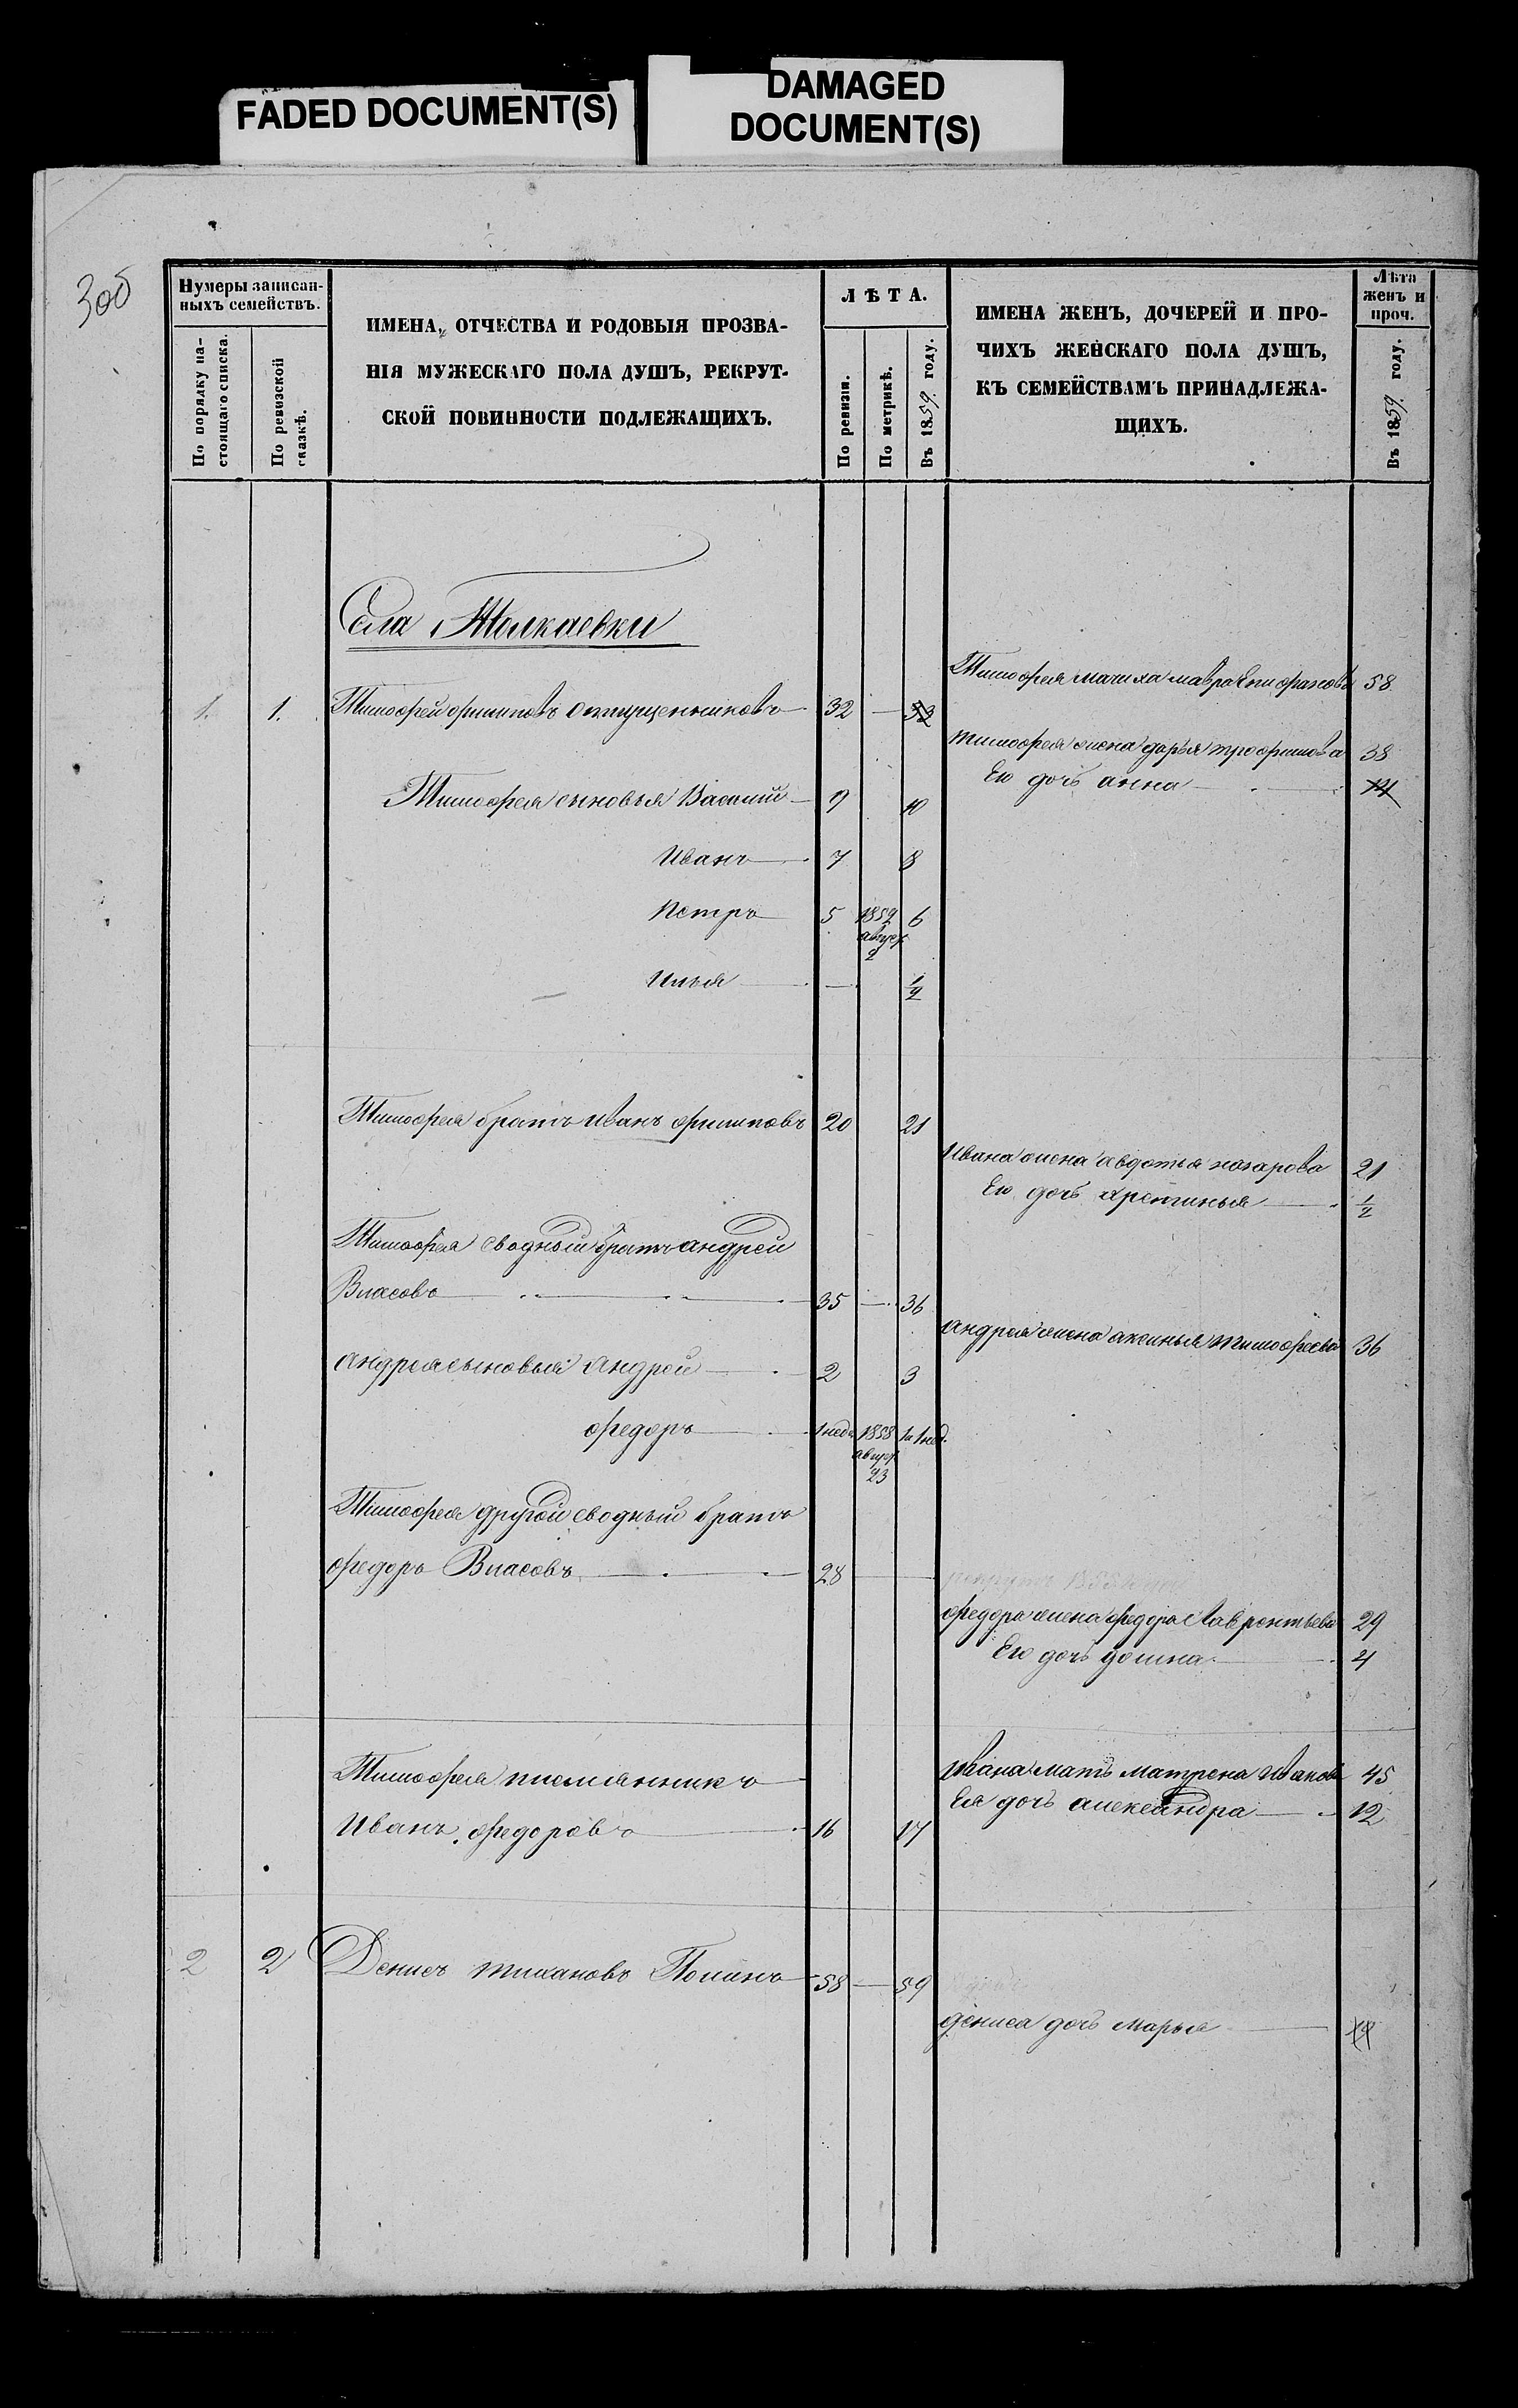 FADED DOCUMENT(S)
DAMAGED
DOCUMENT(S)
305
Нумеры записан-
ныхъ семействъ.
По порядку на-
стоящаго списка.
По ревизской
сказкѣ.
ИМЕНА, ОТЧЕСТВА И РОДОВЫЯ ПРОЗВА-
НІЯ МУЖЕСКАГО ПОЛА ДУШЪ, РЕКРУТ-
СКОЙ ПОВИННОСТИ ПОДЛЕЖАЩИХЪ.
ЛѢТА.
По ревизіи.
По метрикѣ.
Въ 1859 году.
ИМЕНА ЖЕНЪ, ДОЧЕРЕЙ И ПРО-
ЧИХЪ ЖЕНСКАГО ПОЛА ДУШЪ,
КЪ СЕМЕЙСТВАМЪ ПРИНАДЛЕЖА-
ЩИХЪ.
Лѣта
женъ и
проч.
Въ 1859 году.
Села Толкаевки
Тимофея мачиха мавра Епифанова 58
1. 1. Тимофей филиповъ Отпущенниковъ 32 — 33
тимофея жена дарья трофимова 38
Его дочь анна 14
Тимофея сыновья Василий 9 10
Иванъ 7 8
Петръ 5 1852 6
август
2
Илья — 1/2
Тимофея братъ иванъ филиповъ 20 21
Ивана жена авдотья назарова 21
Его дочь хретинья 1/2
Тимофея сводный братъ андрей
Власовъ 35 — 36
андрея жена аксинья тимофеева 36
андрея сыновья Андрей 2 3
федоръ 1 нед. 1858 1 и 1 нед.
август
23
Тимофея другой сводный братъ
федоръ Власовъ 28
рекрутъ
федора жена федора Лаврентьева 29
Его дочь домна 4
Тимофея племянникъ
Иванъ федоровъ 16 17
Ивана мать матрена иванова 45
Ея дочь александра 12
2 2 Денисъ тихановъ Полинъ 58 — 59
дениса дочь марья